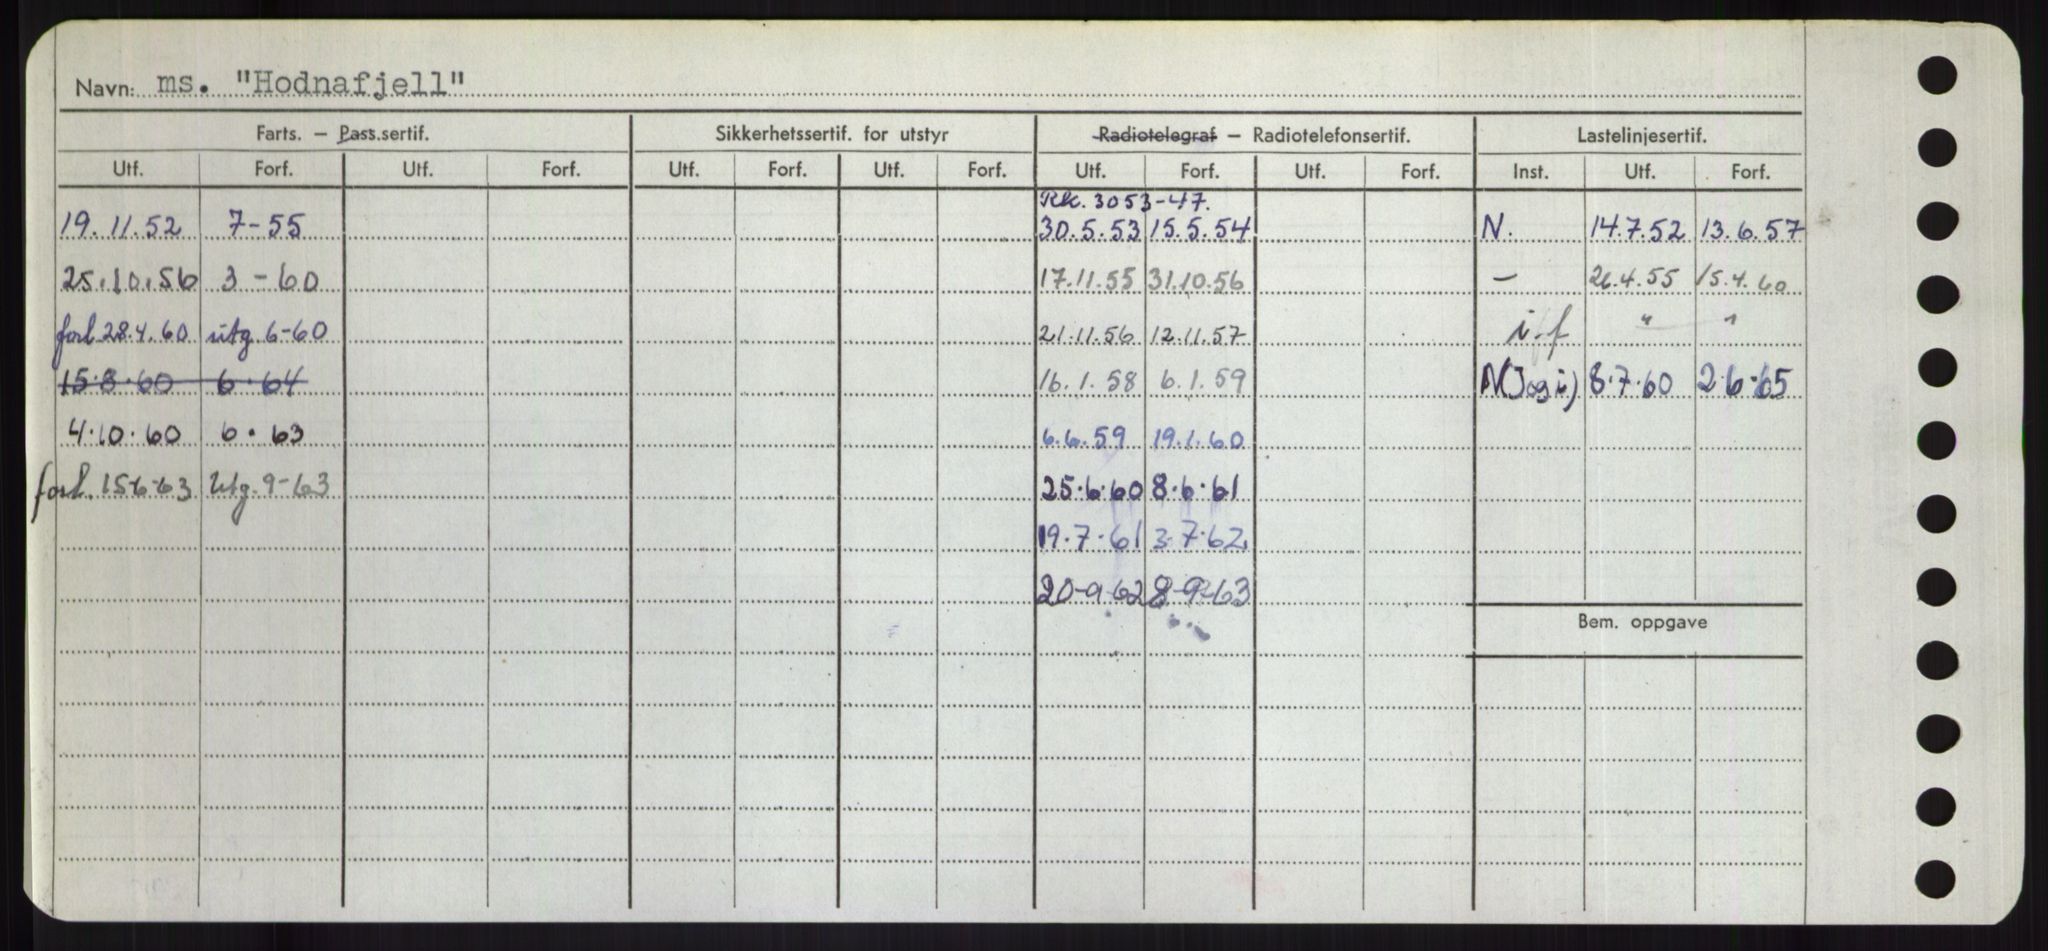 Navn: ms. "Hodnafjell"
Farts. — Pass.sertif. Sikkerhetssertif. for utstyr Radiotelegraf — Radiotelefonsertif. Lastelinjesertif.
Utf. Forf. Utf. Forf. Utf. Forf. Utf. Forf. Utf. Forf. Utf. Forf. Inst. Utf. Forf.
Rk. 3053-47.
19.11.52 7-55 30.5.53 15.5.54 N. 14.7.52 13.6.57
25.10.56 3-60 17.11.55 31.10.56 — 26.4.55 15.4.60
forl 28.4.60 utg 6-60 21.11.56 12.11.57 i-f " "
15.8.60 6.64 16.1.58 6.1.59 N(J og i) 8.7.60 2.6.65
4.10.60 6.63 6.6.59 19.1.60
forl. 15-6-63 Utg. 9-63 25.6.60 8.6.61
19.7.61 3.7.62
20-9-62 8-9-63
Bem. oppgave